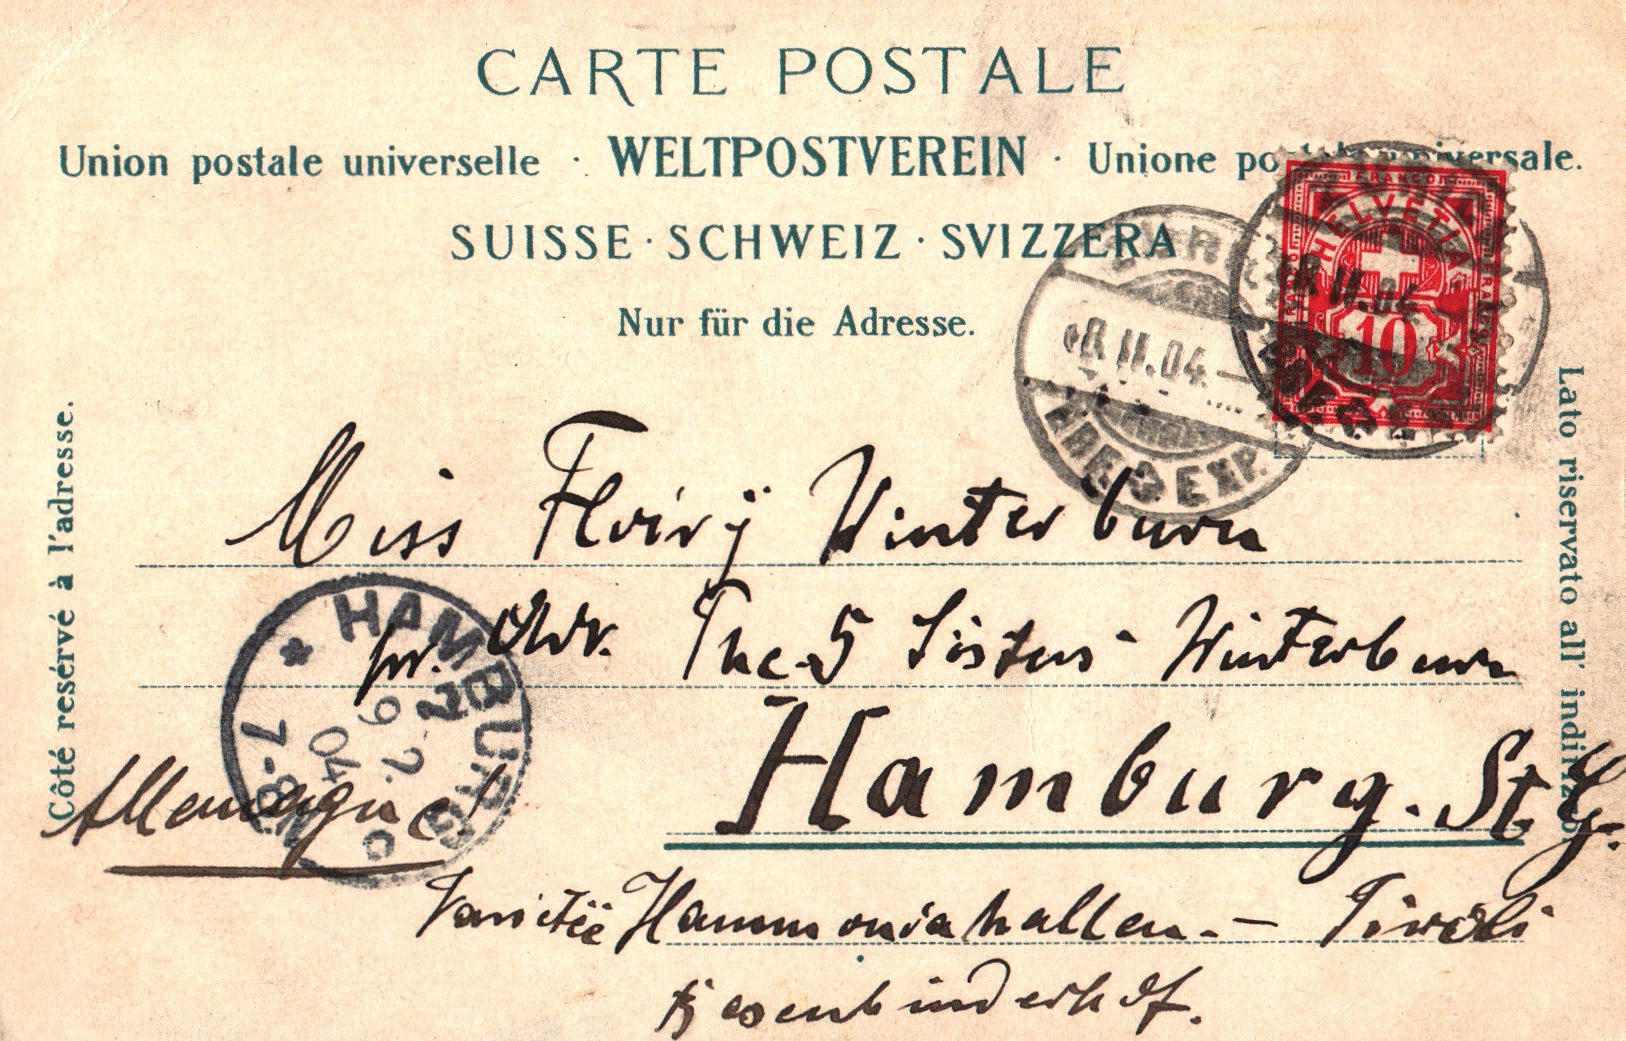 CARTE POSTALE
Union postale universelle · WELTPOSTVEREIN · Unione postale universale.
SUISSE · SCHWEIZ · SVIZZERA
Nur für die Adresse.
FRANCO
HELVETIA
10
8.II.04.–
BRF. EXP.
8.II.04.–
Côté resérvé à l'adresse.
Lato riservato all' indirizzo
Miss Winterburn
pr. Adr. The 5 Sisters Winterburn
HAMBURG
9 2.
04
7-8N
Hamburg. St. G.
Allemagne
Varietée Hammoniahallen. – Tivoli
Besenbinderhof.